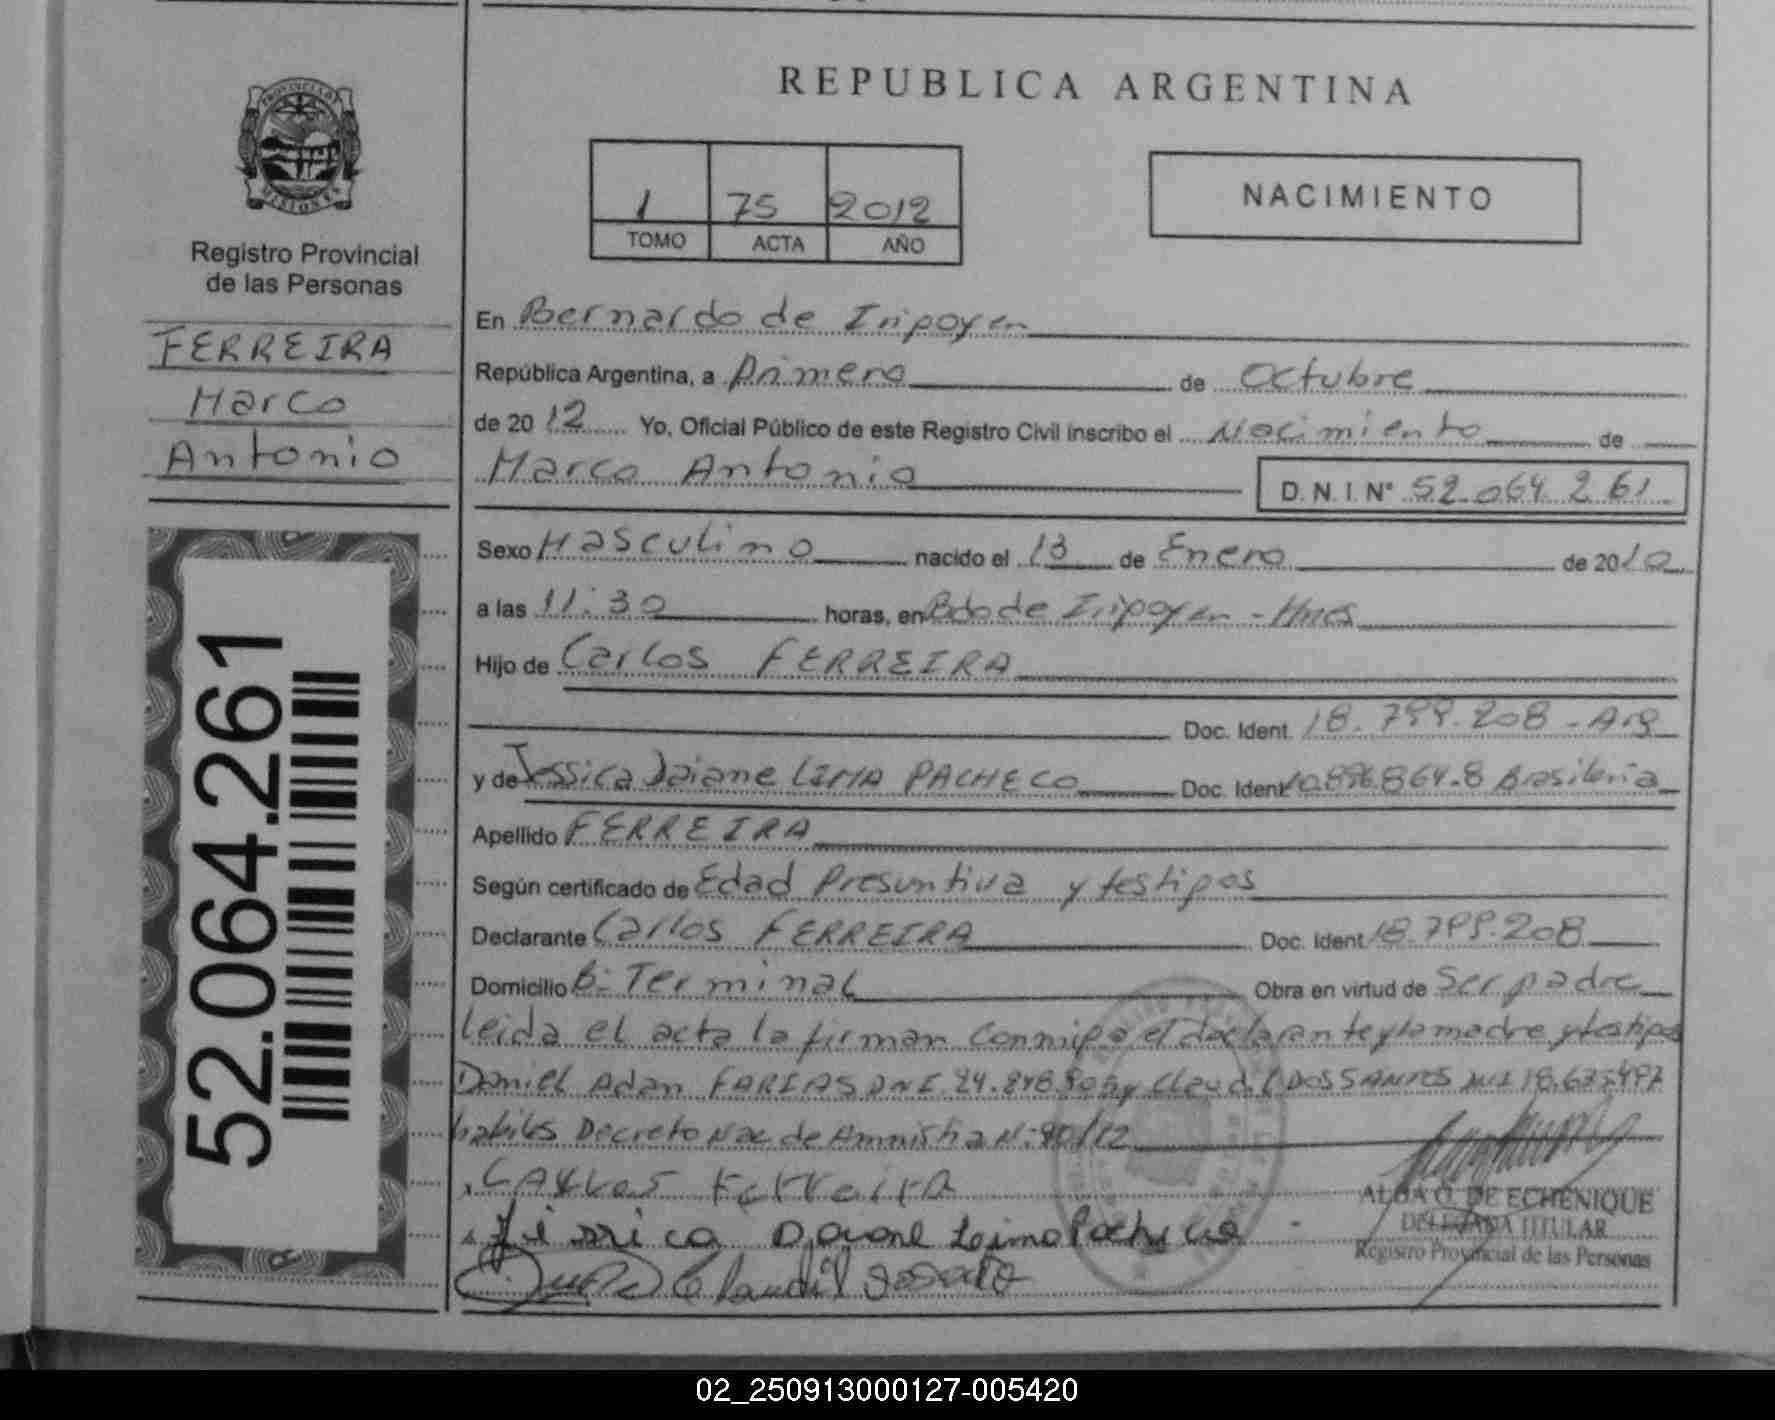 REPUBLICA ARGENTINA
PROVINCIA DE MISIONES
Registro Provincial
de las Personas
FERREIRA
Marco
Antonio
52.064.261
1 75 2012
TOMO ACTA AÑO
NACIMIENTO
En Bernardo de Iripoyen
República Argentina, a Primero de Octubre
de 2012 Yo, Oficial Público de este Registro Civil inscribo el Nacimiento de
Marco Antonio D.N.I. Nº 52.064.261
Sexo Masculino nacido el 13 de Enero de 2010
a las 11:30 horas, en Bdo de Iripoyen - Mnes
Hijo de Carlos FERREIRA
Doc. Ident. 18.799.208 - Arg
y de Jessica Daiane LIMA PACHECO Doc. Ident 10.896.864-8 Brasileria
Apellido FERREIRA
Según certificado de Edad Presuntiva y testipos
Declarante Carlos FERREIRA Doc. Ident 18.799.208
Domicilio B: Terminal Obra en virtud de Ser padre
leida el acta la firman conmipo el declarante y la madre y testipos
Daniel Adan FARIAS DNI 24. y Claudil DOS SANTOS 18.
habiles Decreto Nac de Amnistia N: 90/12
CARLOS Ferreira
Jessica Daiane Leima Pacheco
Claudil
ALBA O. DE ECHENIQUE
DELEGADA TITULAR
Registro Provincial de las Personas
02_250913000127-005420